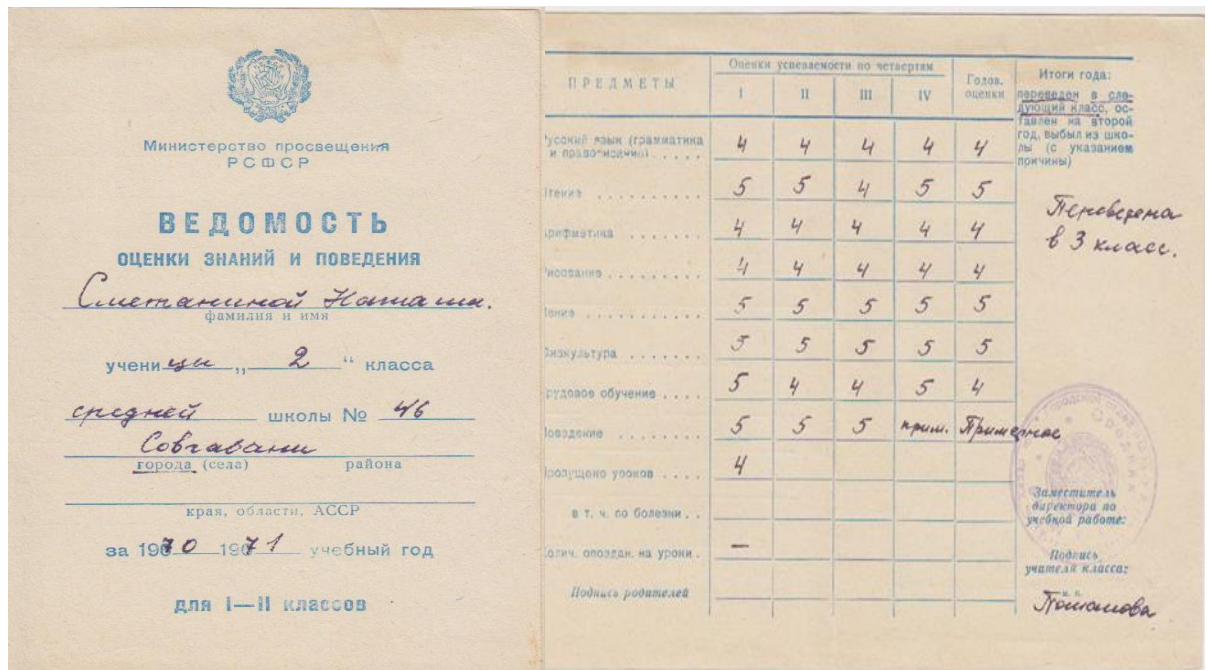 Министерство просвещения
РСФСР
ВЕДОМОСТЬ
ОЦЕНКИ ЗНАНИЙ И ПОВЕДЕНИЯ
Сметаниной Наташи.
фамилия и имя
учени цы „ 2 “ класса
средней школы № 46
Совгавани
города (села) района
края, области, АССР
за 1970 1971 учебный год
для I—II классов
ПРЕДМЕТЫ
Оценки успеваемости по четвертям
I II III IV
Годов. оценки
Итоги года:
переведен в сле-
дующий класс, ос-
тавлен на второй
год, выбыл из шко-
лы (с указанием
причины)
Переведена
в 3 класс.
Русский язык (грамматика
и правописание) . . . . . 4 4 4 4 4
Чтение . . . . . . . . . . 5 5 4 5 5
Арифметика . . . . . . . 4 4 4 4 4
Рисование . . . . . . . . . 4 4 4 4 4
Пение . . . . . . . . . . . 5 5 5 5 5
Физкультура . . . . . . . 5 5 5 5 5
Трудовое обучение . . . . 5 4 4 5 4
Поведение . . . . . . . . 5 5 5 прим. Примерное
Пропущено уроков . . . . 4
в т. ч. по болезни . .
Колич. опоздан. на уроки . —
Подпись родителей
Заместитель
директора по
учебной работе:
Подпись
учителя класса: